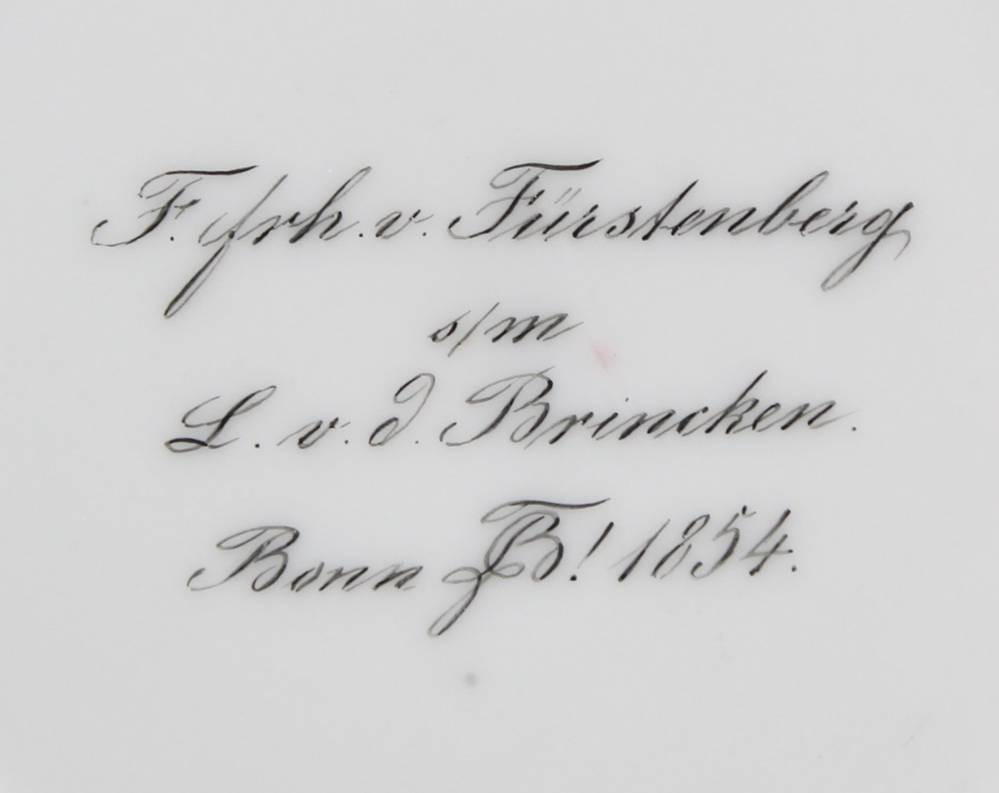 F. frh. v. Fürstenberg
s/m
L. v. d. Brincken.
Bonn 1854.